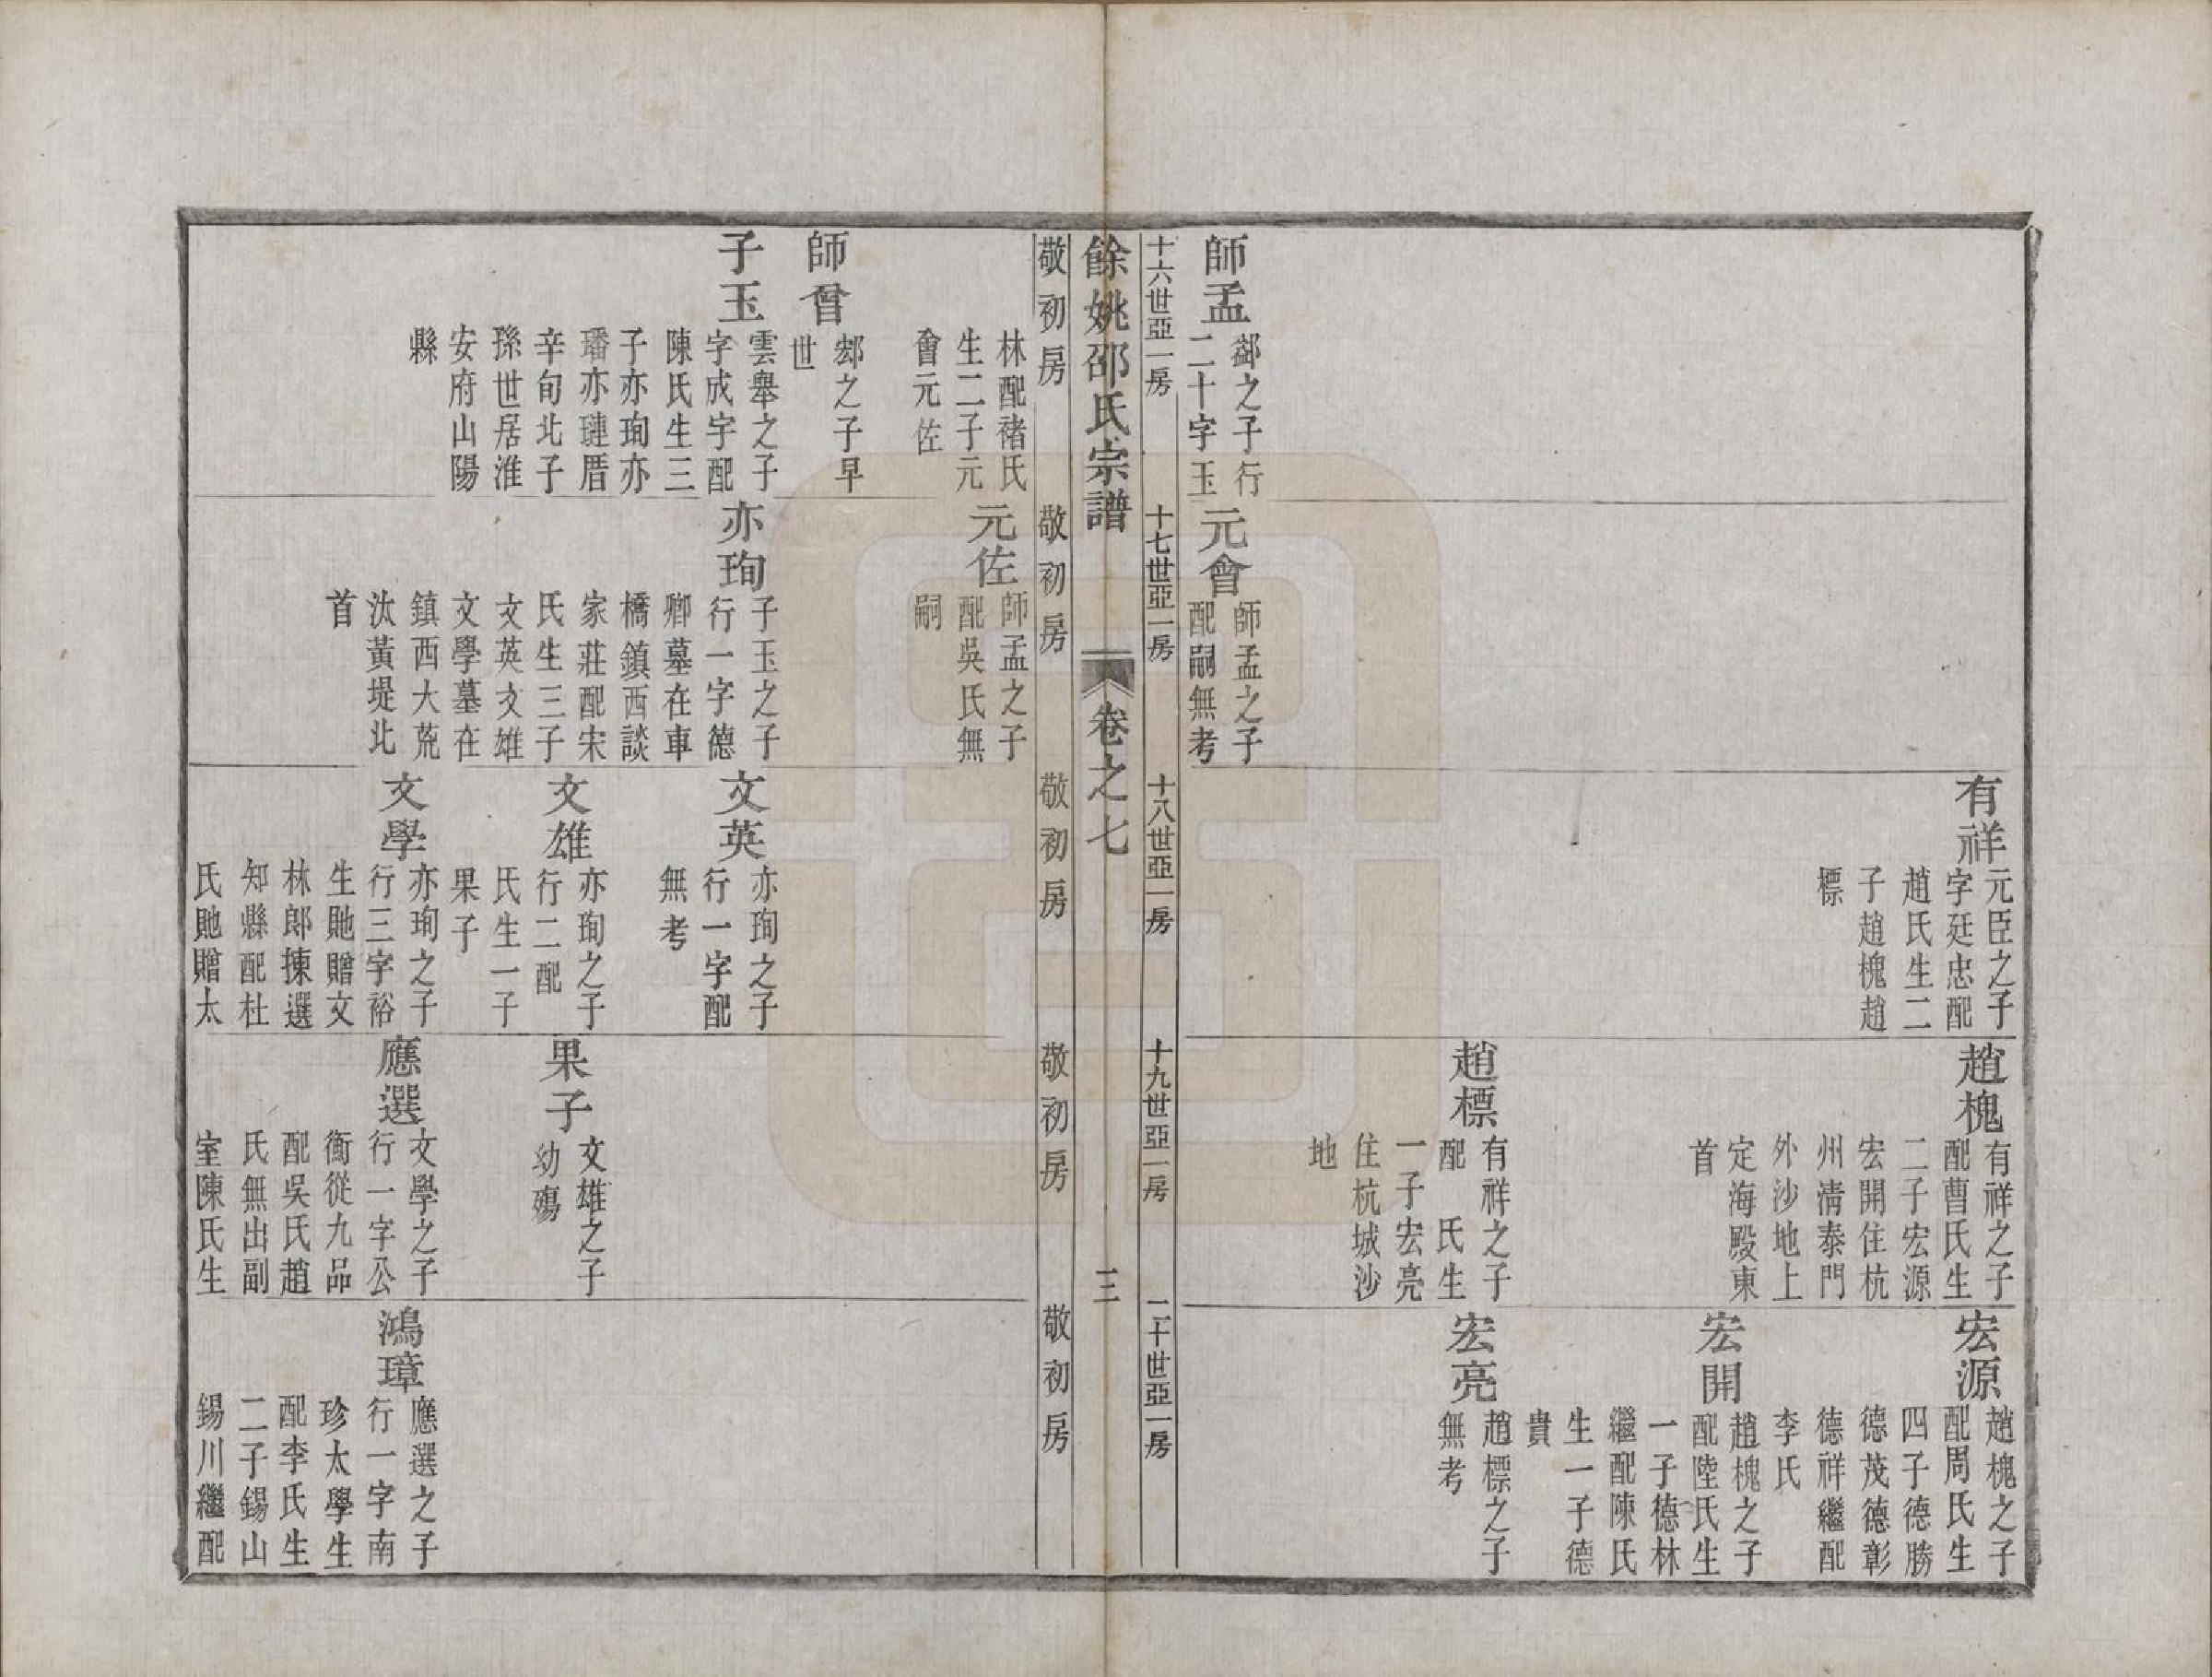 師孟
鄀之子行
二十字玉
元會
師孟之子
配嗣無考
有祥
元臣之子
字廷忠配
趙氏生二
子趙槐趙
標
趙槐
有祥之子
配曹氏生
二子宏源
宏開住杭
州清泰門
外沙地上
定海殿東
首
趙標
有祥之子
配 氏生
一子宏亮
住杭城沙
地
宏源
趙槐之子
配周氏生
四子德勝
德茂德彰
德祥繼配
李氏
宏開
趙槐之子
配陸氏生
一子德林
繼配陳氏
生一子德
貴
宏亮
趙標之子
無考
十六世亞一房
十七世亞一房
十八世亞一房
十九世亞一房
二十世亞一房
餘姚邵氏宗譜
卷之七
三
敬初房
敬初房
敬初房
敬初房
敬初房
林配褚氏
生二子元
會元佐
師曾
之子早
世
子玉
雲舉之子
字成宇配
陳氏生三
子亦珣亦
璠亦璉厝
辛旬北子
孫世居淮
安府山陽
縣
元佐
師孟之子
配吳氏無
嗣
亦珣
子玉之子
行一字德
卿墓在車
橋鎮西談
家莊配宋
氏生三子
文英文雄
文學墓在
鎮西大荒
汰黃堤北
首
文英
亦珣之子
行一字配
無考
文雄
亦珣之子
行二配
氏生一子
果子
文學
亦珣之子
行三字裕
生貤贈文
林郎揀選
知縣配杜
氏貤贈太
果子
文雄之子
幼殤
應選
文學之子
行一字公
衡從九品
配吳氏趙
氏無出副
室陳氏生
鴻璋
應選之子
行一字南
珍太學生
配李氏生
二子錫山
錫川繼配